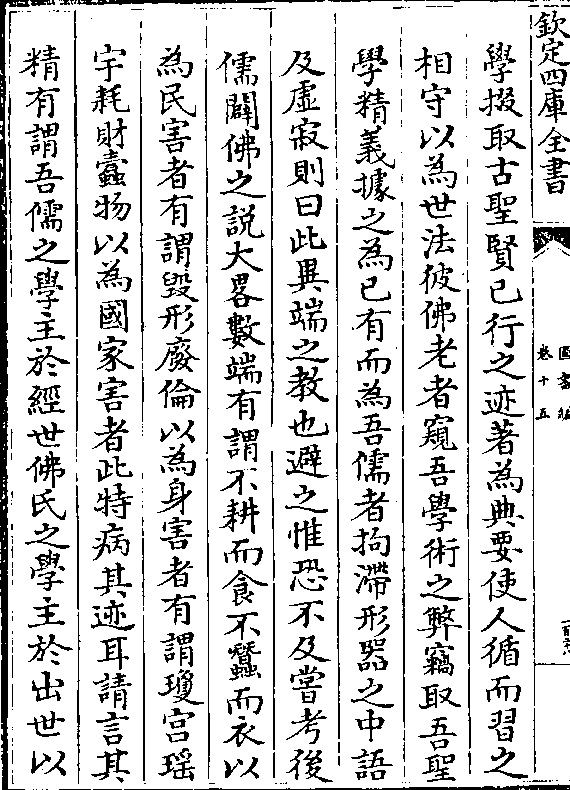 欽定四庫全書
圖書編
卷十五
學掇取古聖賢已行之迹著為典要使人循而習之
相守以為世法彼佛老者窺吾學術之弊竊取吾聖
學精義據之為已有而為吾儒者拘滯形器之中語
及虛寂則曰此異端之教也避之惟恐不及嘗考後
儒闢佛之説大畧數端有謂不耕而食不蠶而衣以
為民害者有謂毁形廢倫以為身害者有謂瓊宫瑶
宇耗財蠧物以為國家害者此特病其迹耳請言其
精有謂吾儒之學主於經世佛氏之學主於出世以